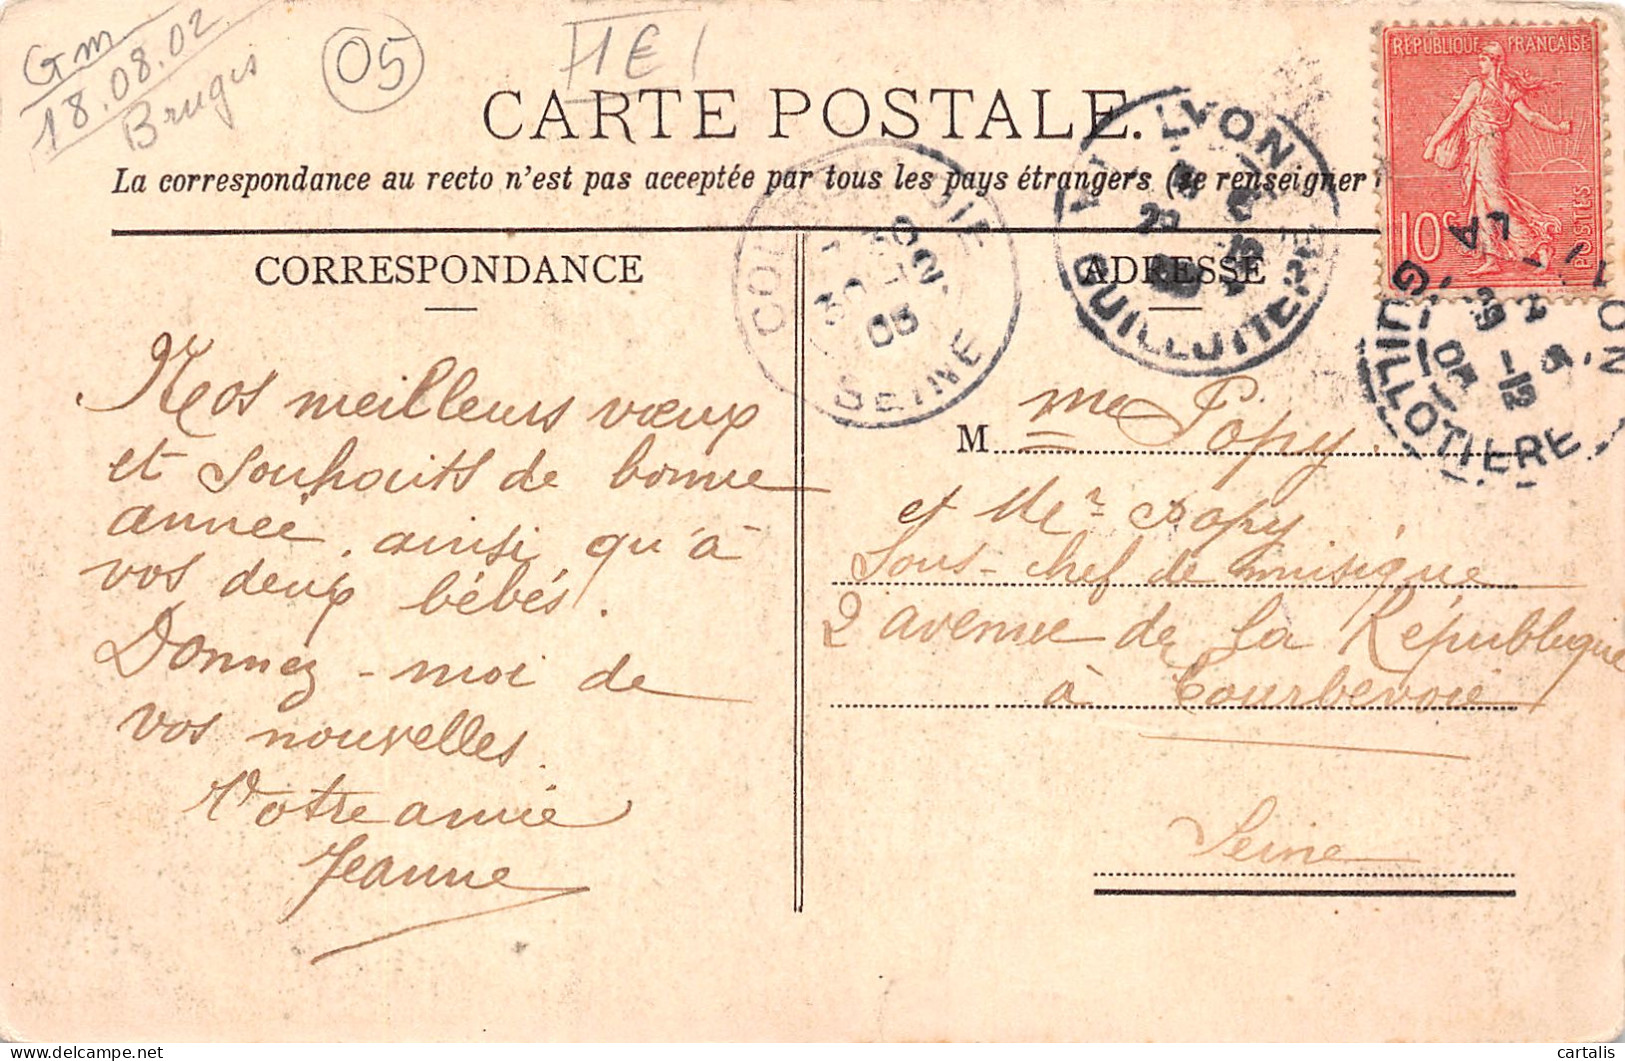 Gm
18.08.02
Bruges
05
1E
CARTE POSTALE.
La correspondance au recto n'est pas acceptée par tous les pays étrangers (se renseigner
RÉPUBLIQUE FRANÇAISE
10c
POSTES
LYON
GUILLOTIERE
COURBEVOIE
30 - 12
05
SEINE
LYON
LA GUILLOTIERE
29 - 12
05
CORRESPONDANCE
Nos meilleurs vœux
et souhaits de bonne
année, ainsi qu'à
vos deux bébés.
Donnez-moi de
vos nouvelles.
Votre amie
Jeanne
ADRESSE
M me Popy
et Mr Popy
Sous-chef de musique
2 avenue de la République
à Courbevoie
Seine
cartalis